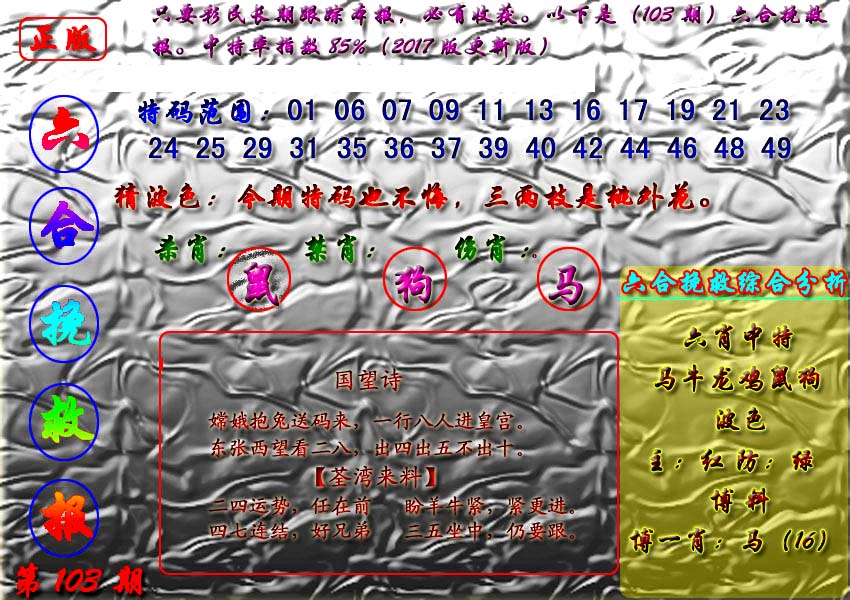 正版
只要彩民长期跟踪本报，必有收获。以下是（103 期）六合挽救
报。中特率指数 85%（2017 版更新版）
六合挽救报
第 103 期
特码范围：01 06 07 09 11 13 16 17 19 21 23
24 25 29 31 35 36 37 39 40 42 44 46 48 49
猜波色：今期特码也不悔，三两枝是桃外花。
杀肖： 禁肖： 伤肖：。
鼠 狗 马
国望诗
嫦娥抱兔送码来，一行八人进皇宫。
东张西望看二八，出四出五不出十。
【荃湾来料】
二四运势，任在前 盼羊牛紧，紧更进。
四七连结，好兄弟 三五坐中，仍要跟。
六合挽救综合分析
六肖中特
马牛龙鸡鼠狗
波色
主：红防：绿
博料
博一肖：马（16）